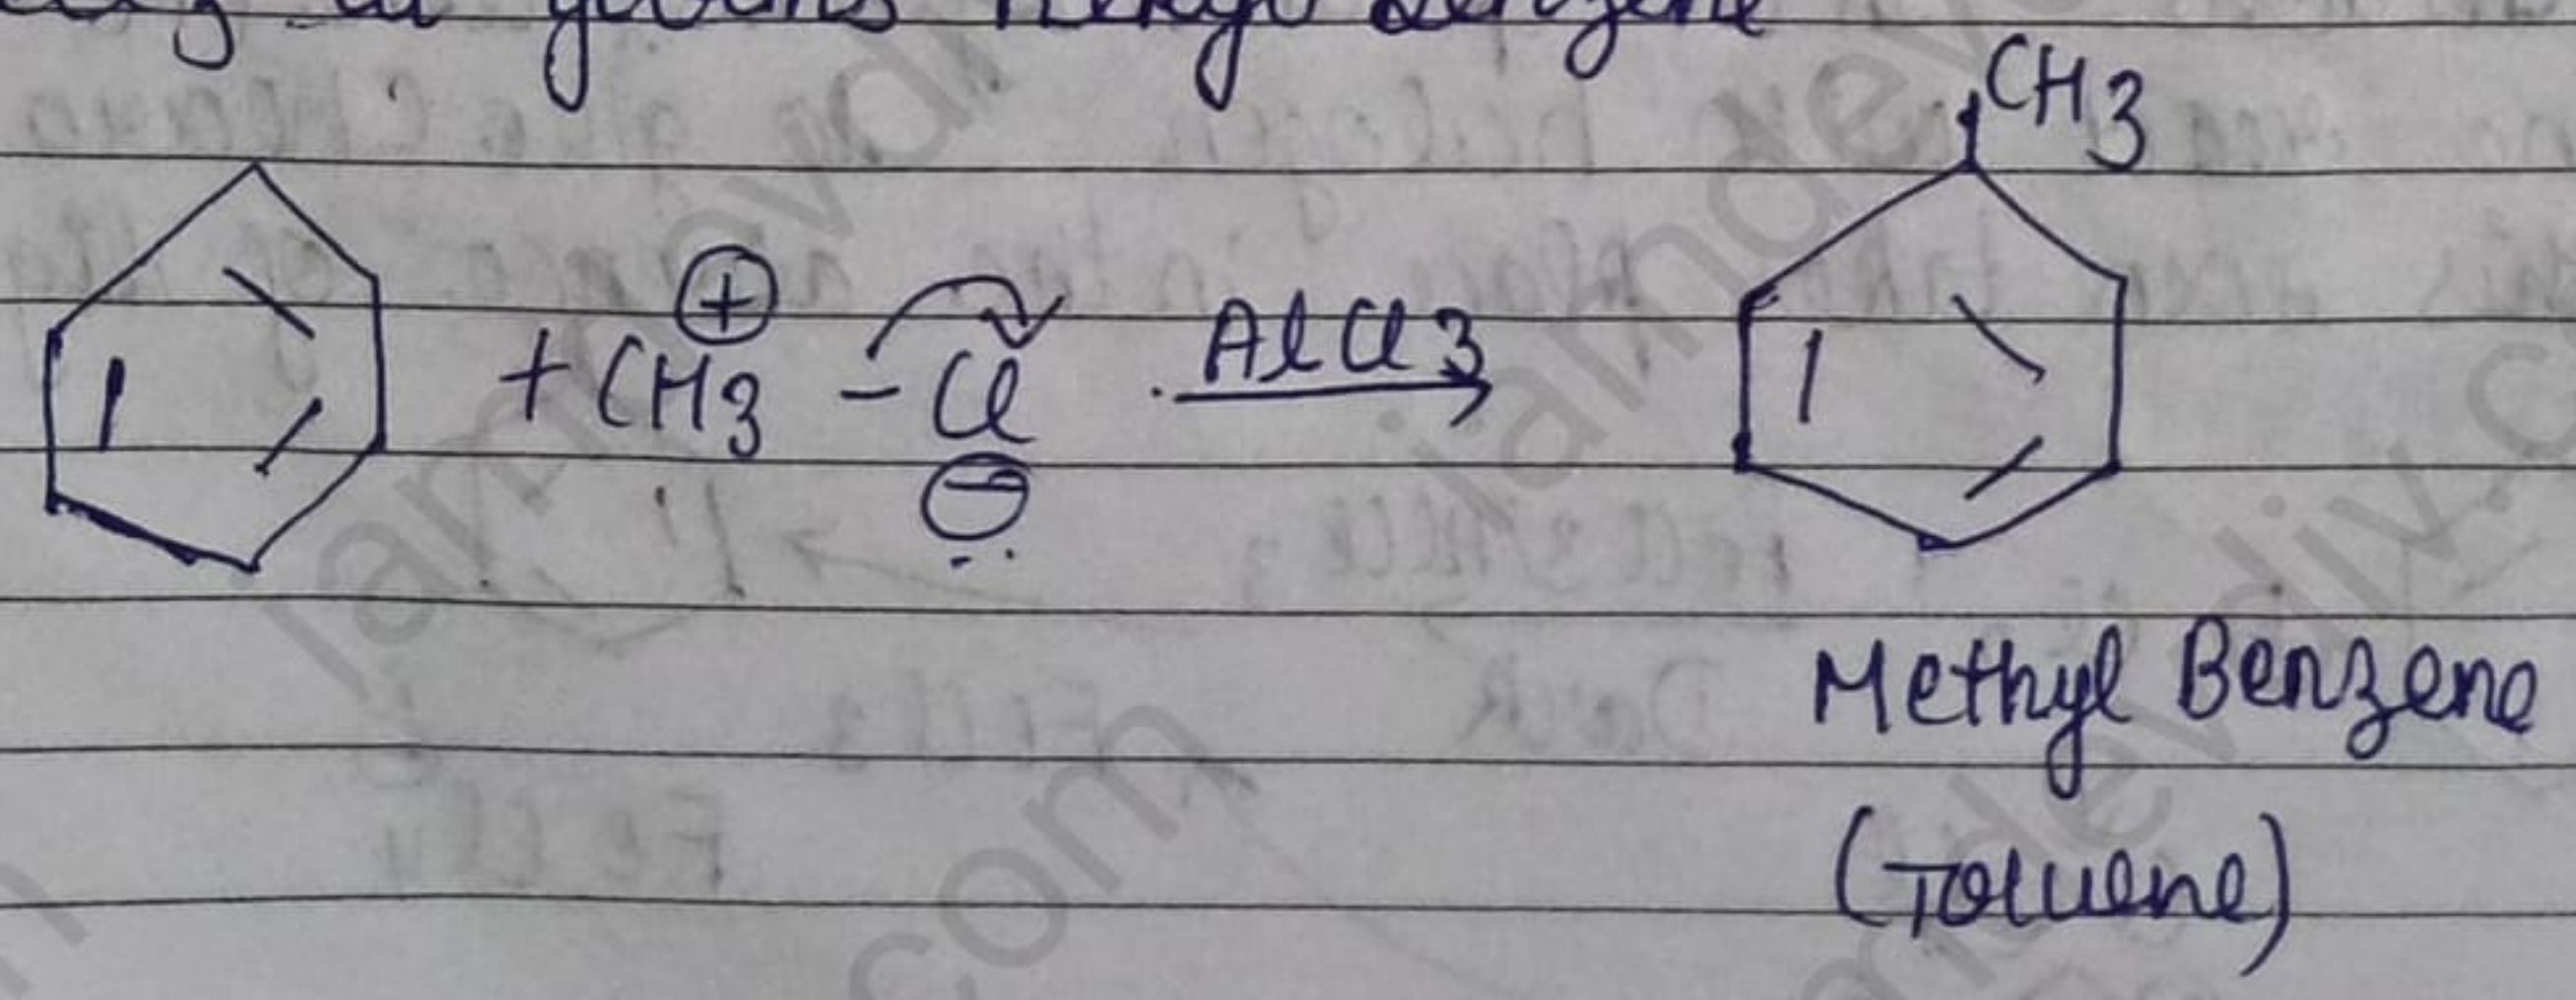 CH3
+ CH3 - Cl AlCl3
Methyl Benzene
(Toluene)